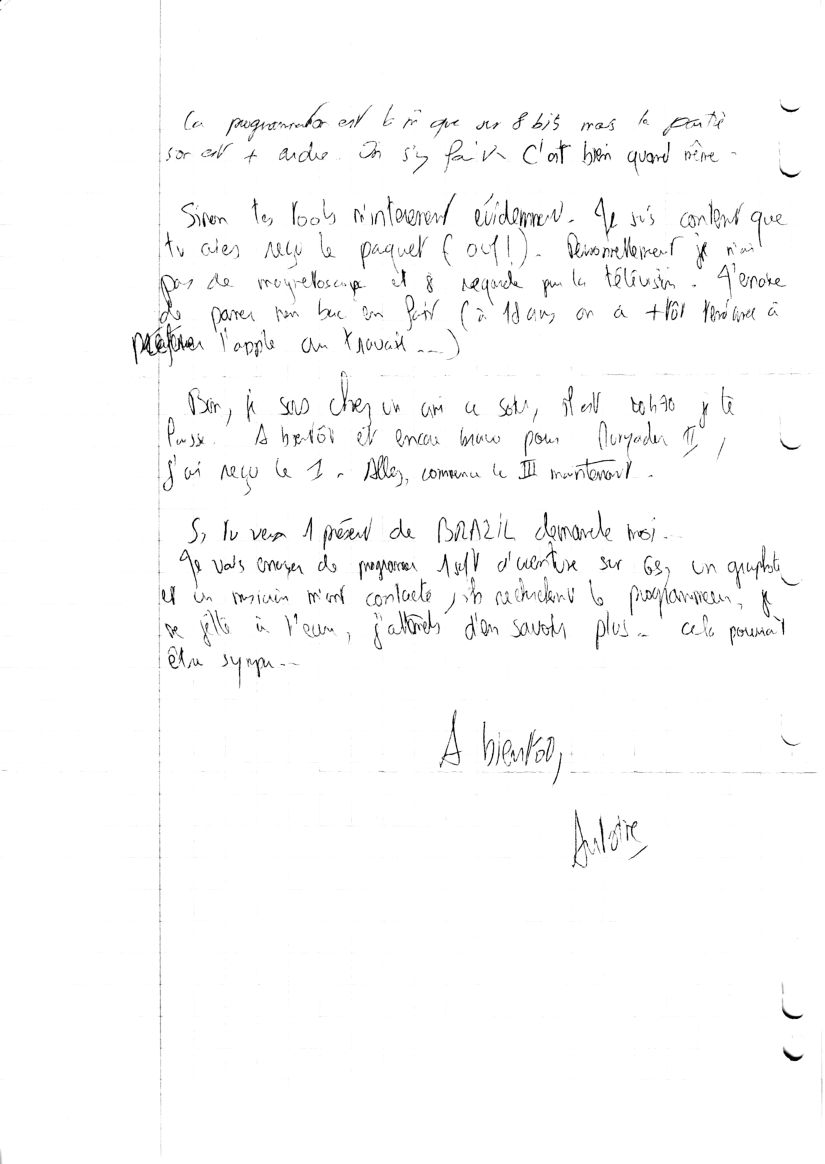 La programmation est la m̂ que sur 8 bits mais la partie
son est + ardue. On s'y fait. C'est bien quand même.
Sinon tes tools m'interessent évidemment. Je suis content que
tu aies reçu le paquet (ouf!). Personnellement je n'ai
pas de magnetoscope et je regarde peu la télévision. J'essaie
de passer mon bac en fait (à 18 ans on a +tôt tendance à
préférer l'apple au travail...)
Bon, je suis chez un ami ce soir, il est je te
laisse. A bientôt et encore bravo pour II,
j'ai reçu le 1. Allez, commence le III maintenant.
Si tu veux 1 présent de BRAZIL demande moi...
Je vais essayer de programmer 1 soft d'aventure sur GS, un graphiste
et un musicien m'ont contacté, ils recherchent 1 programmeur, je
me jette à l'eau, j'attends d'en savoir plus. cela pourrait
être sympa...
A bientôt,
Antoine